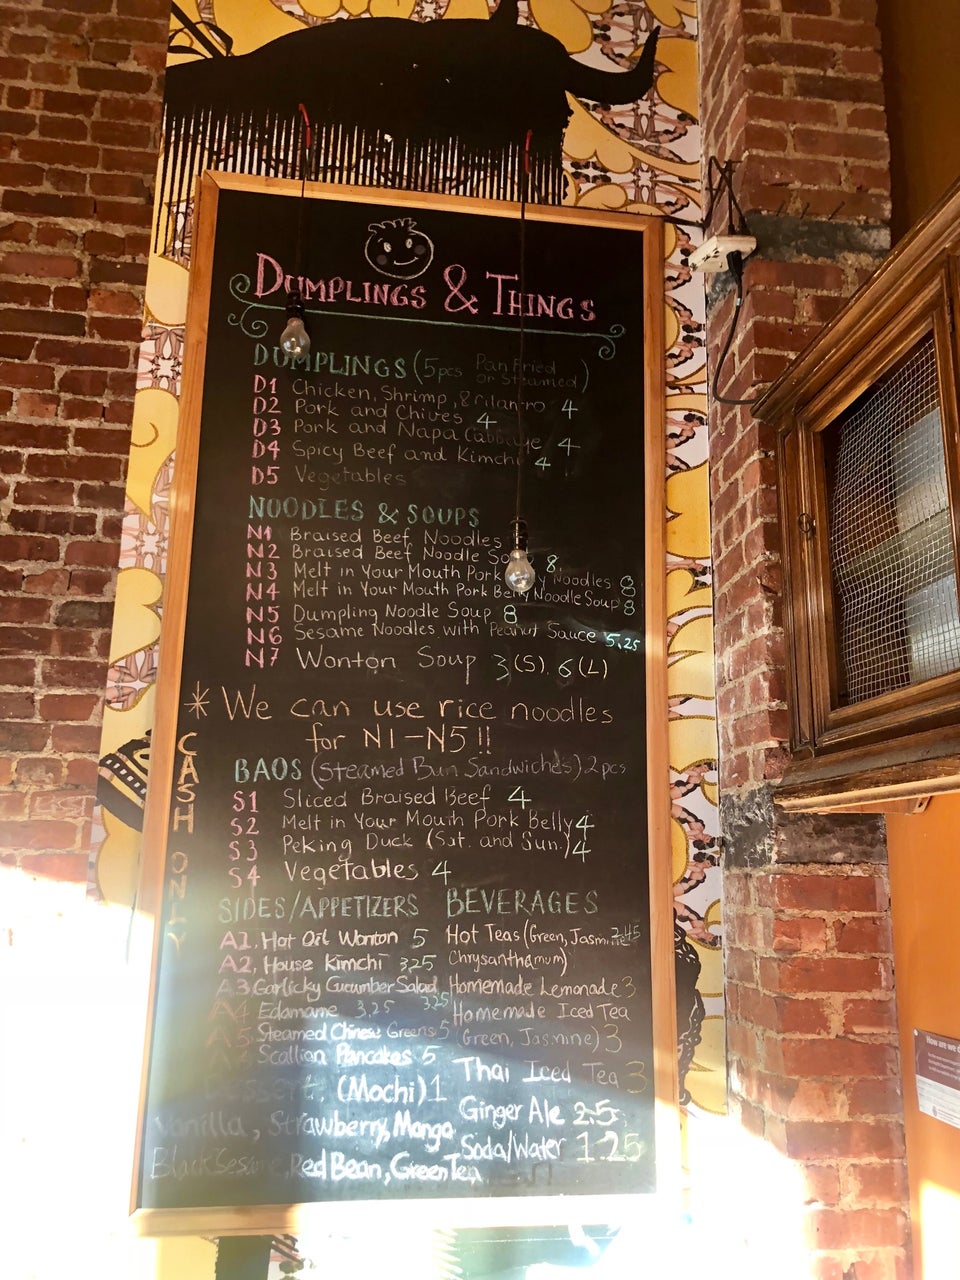 DUMPLINGS & THINGS
DUMPLINGS (5pcs Pan Fried or Steamed)
D1 Chicken, Shrimp, & Cilantro 4
D2 Pork and Chives 4
D3 Pork and Napa Cabbage 4
D4 Spicy Beef and Kimchi 4
D5 Vegetables
NOODLES & SOUPS
N1 Braised Beef Noodles
N2 Braised Beef Noodle 8
N3 Melt in Your Mouth Pork Noodles 8
N4 Melt in Your Mouth Pork Belly Noodle Soup 8
N5 Dumpling Noodle Soup 8
N6 Sesame Noodles with Peanut Sauce 5.25
N7 Wonton Soup 3(S). 6(L)
* We can use rice noodles
for N1-N5!!
CASH ONLY
BAOS (Steamed Bun Sandwiches) 2pcs
S1 Sliced Braised Beef 4
S2 Melt in Your Mouth Pork Belly 4
S3 Peking Duck (Sat. and Sun.) 4
S4 Vegetables 4
SIDES/APPETIZERS
A1. Hot Oil Wonton 5
A2. House Kimchi 3.25
A3 Garlicky Cucumber Salad 3.25
A4 Edamame 3.25
A5 Steamed Chinese Greens 5
Scallion Pancakes 5
Dessert. (Mochi) 1
Vanilla, Strawberry, Mango
Black Sesame, Red Bean, Green Tea
BEVERAGES
Hot Teas (Green, Jasmine
Chrysanthamum)
Homemade Lemonade 3
Homemade Iced Tea
(Green, Jasmine) 3
Thai Iced Tea 3
Ginger Ale 2.5
Soda/Water 1.25
How are we